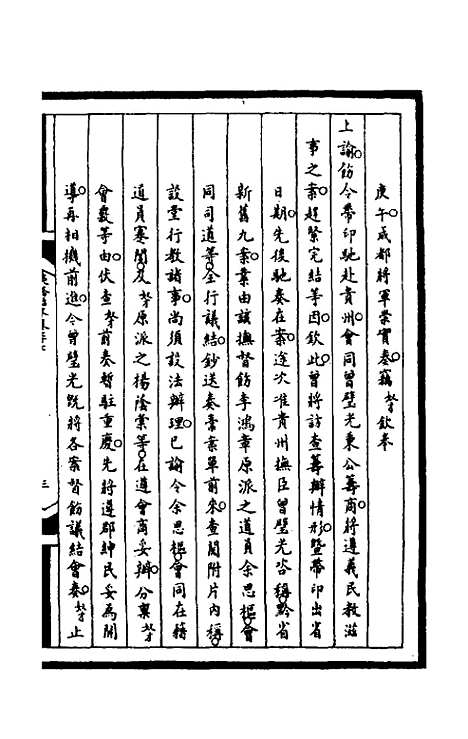 庚午成都將軍崇實奏竊𡥉欽奉
上諭飭令帶印馳赴貴州會同曾璧光秉公籌商將遵義民教滋
事之案趕緊完結等因欽此曾將訪查籌辦情形暨帶印出省
日期先後馳奏在案途次准貴州撫臣曾璧光咨稱黔省
新舊九案業由該撫督飭李鴻章原派之道員余思樞會
同司道等全行議結鈔送奏稾案單前來查閱附片內稱
設堂行教諸事尚須設法辦理已諭令余思樞會同在籍
道員蹇誾及𡥉原派之楊蔭棠等在遵會商妥辦分稟𡥉
會覈等由伏查𡥉前奏暫駐重慶先將遵郡紳民妥爲開
導再相機前進今曾璧光旣將各案督飭議結會奏𡥉止
三